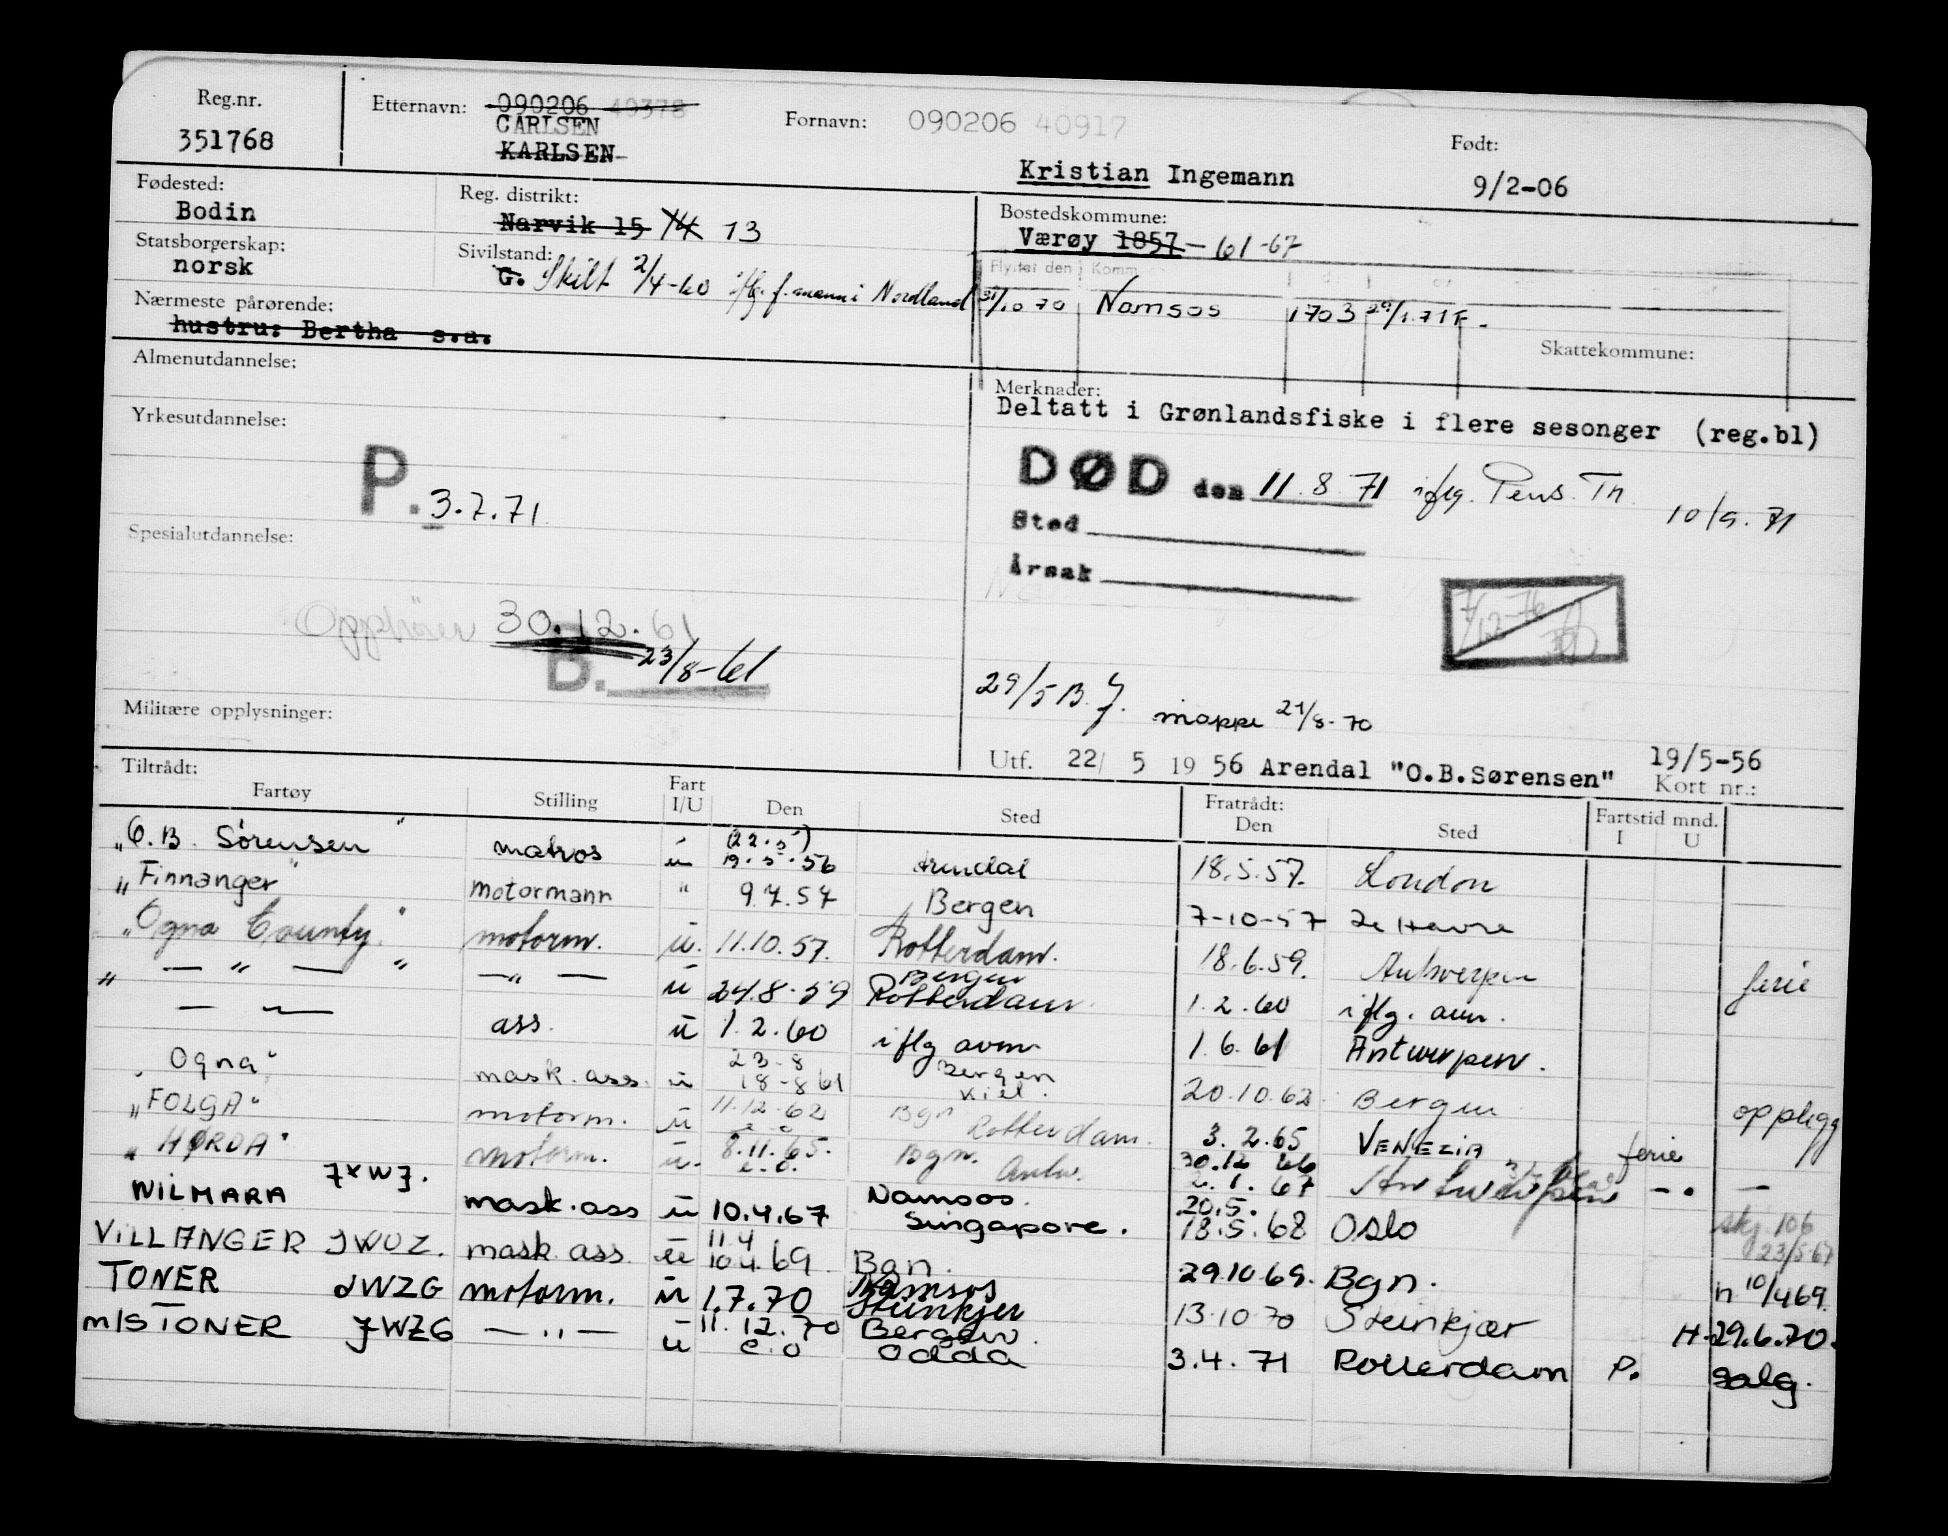 Reg.nr.
351768
Etternavn: 090206 40378
CARLSEN
KARLSEN
Fornavn: 090206 40917
Kristian Ingemann
Født:
9/2-06
Fødested:
Bodin
Reg. distrikt:
Narvik 15 14 13
Bostedskommune:
Værøy 1857 - 61-67
Statsborgerskap:
norsk
Sivilstand:
G. Skilt 2/4-60 iflg. f.mann i Nordland
Flyttet den Komm
31/10 70 Namsos 1703 29/1.71 F.
Nærmeste pårørende:
hustru: Bertha s.a.
Skattekommune:
Almenutdannelse:
Merknader:
Deltatt i Grønlandsfiske i flere sesonger (reg.bl)
Yrkesutdannelse:
P. 3.7.71.
DØD den 11.8.71 iflg. Pens. Tr. 10/9.71
Sted
Årsak
Spesialutdannelse:
Opphører 30.12.61
B. 23/8-61
7/12-76
29/5 B. mappe 21/8-70
Militære opplysninger:
Utf. 22/ 5 19 56 Arendal "O.B.Sørensen" 19/5-56
Kort nr.:
Tiltrådt:
Fartøy Stilling Fart I/U Den Sted Fratrådt: Den Sted Fartstid mnd. I U
"O.B. Sørensen" matros u (22.5) 19.5.56 Arendal 18.5.57. London
"Finnanger" motormann " 9.7.57 Bergen 7-10-57 Le Havre
"Ogna County" motorm. u. 11.10.57. Rotterdam. 18.6.59. Antwerpen ferie
" — " — " — " — u 24.8.59 Bergen Rotterdam. 1.2.60 iflg. avm.
— " — ass. u 1.2.60 iflg avm 1.6.61 Antwerpen.
"Ogna" mask. ass. u 23-8 18-8 61 Bergen Kiel. 20.10.62. Bergen opplegg
"FOLGA" motorm. u 11.12.62 Bgn Rotterdam. 3.2.65 VENEZIA ferie
"HØRDA" motorm. u. 8.11.65. e.o. Bgn. Antw. 30.12 66 2.1.67 Antwerpen -.- —
WILMARA JXWJ. mask.ass u 10.4.67 Namsos. Singapore. 20.5. 18.5.68 Oslo skj. 106 23/5 67
VILLANGER JWUZ. mask ass. u 11.4 10.4.69 Bgn. 29.10.69. Bgn. h 10/4 69.
TONER JWZG motorm. u 1.7.70 Namsos Steinkjer 13.10.70 Steinkjær H-29.6.70.
m/s TONER JWZG — " — u 11.12.70 e.o Bergen. Odda 3.4.71 Rotterdam P. salg.